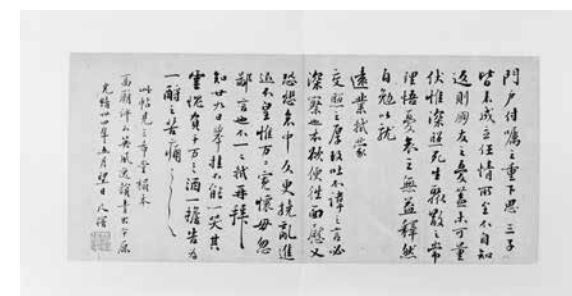 門戶付囑之重下思三子
皆未成立任情所至不自知
返則朋友之憂蓋未可量
伏惟深照死生聚散之常
理悟憂哀之無益釋然
自勉以就
遠業軾蒙
交照之厚故吐不諱之言必
深察也本欲便往面慰又
恐悲哀中反更撓亂進
退不皇惟萬萬寬懷毋忽
鄙言也不一一軾再拜
知廿九日舉挂不能一哭其
靈愧負千万千万酒一擔告為
一酹之苦痛
此帖見之希堂模本
高評以英風逸韻書出平原
光緒廿四年五月望日